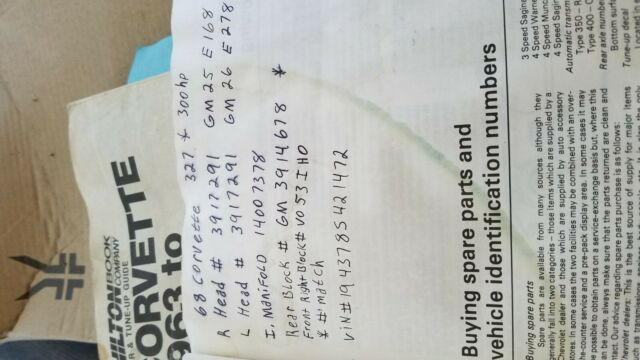 HILTON BOOK
COMPANY
R & TUNE-UP GUIDE
ORVETTE
963 to
68 Corvette 327 * 300hp
R Head # 3917291 GM 25 E 168
L Head # 3917291 GM 26 E 278
I. Manifold 14007378
Rear Block # GM 3914678 *
Front Right Block # V053IHO
* # match
Vin# 194378S421472
Buying spare parts and
vehicle identification numbers
Buying spare parts
Spare parts are available from many sources although they
generally fall into two categories - those items which are supplied by a
Chevrolet dealer and those which are supplied by auto accessory
stores. In some cases the two facilities may be combined with an over-
the-counter service and a pre-pack display area. In some cases it may
be possible to obtain parts on a service-exchange basis but, where this
can be done, always make sure that the parts returned are clean and
intact. Our advice regarding spare parts purchase is as follows:
Chevrolet dealers: This is the best source of supply for major items
3 Speed Sagina
4 Speed Warne
4 Speed Munc
4 Speed Sagi
Automatic transm
Type 350 - R
Type 400 - C
Rear axle number
Bottom surf
Tune-up decal